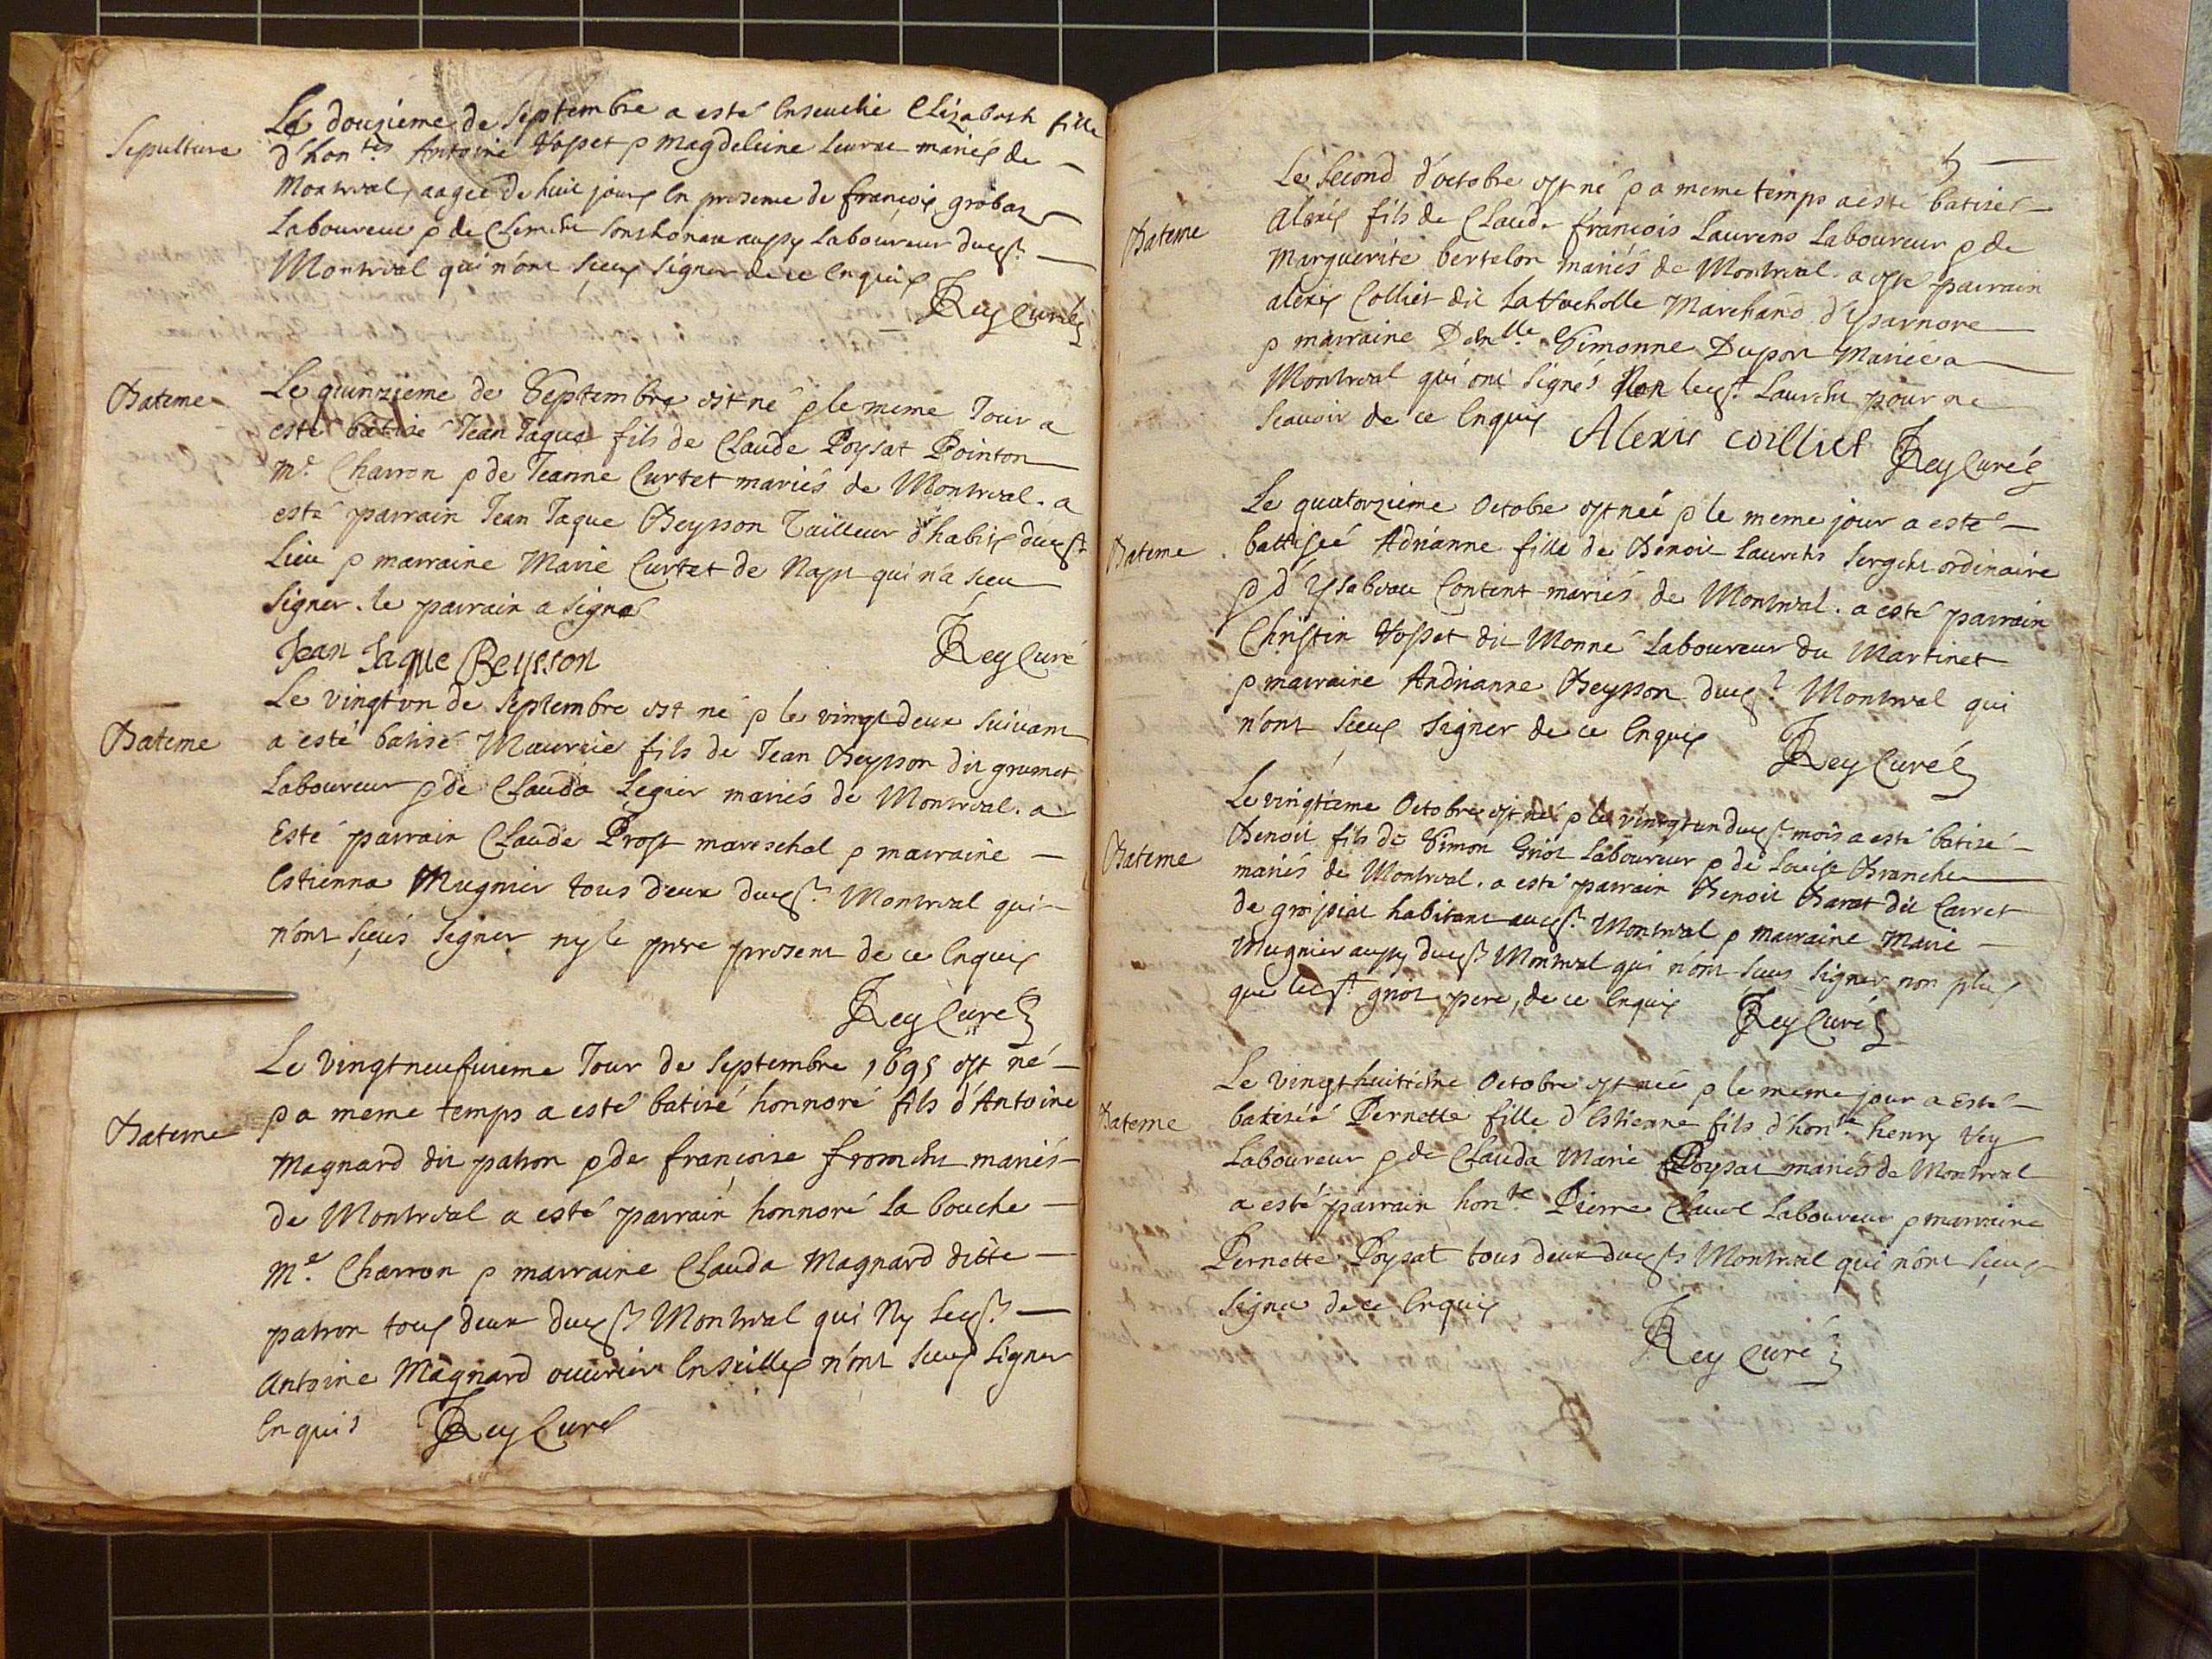 Sepulture
Le douzieme de Septembre a esté Enseuelie Elizabeth fille
d'hon.tes Antoine Vosset & Magdeleine mariés de
Montreal, aagee de huit jours En presence de françois grobas
Laboureur & de Clement aussy Laboureur dud.
Montreal qui n'ont sceus signer de ce Enquis
Rey Curé
Bateme
Le quinzieme de Septembre est né & le meme Jour a
esté batisé Jean Jaque fils de Claude Poysat Pointon
M.e Charron & de Jeanne Curtet mariés de Montreal. a
esté parrain Jean Jaque Beysson Tailleur d'habits dud.
Lieu & marraine Marie Curtet de qui n'a sceu
signer. le parrain a signé
Jean Jaque Beysson
Rey Curé
Bateme
Le vingt un de Septembre est né & le vingt deux suivant
a esté batisé Maurice fils de Jean Beysson dit grumet
Laboureur & de Clauda Legier mariés de Montreal. a
Esté parrain Claude Prost mareschal & marraine
Estienna Mugnier tous deux dud. Montreal qui
n'ont sceus signer ny le pere present de ce Enquis
Rey Curé
Bateme
Le vingt neufuieme Jour de Septembre 1695 est né
& a meme temps a esté batisé honnoré fils d'Antoine
Magnard dit patron & de françoise froment mariés
de Montreal a esté parrain honnoré La bouche
M.e Charron & marraine Clauda Magnard ditte
patron tous deux dud. Montreal qui Ny led.
Antoine Magnard ouurier n'ont sceus signer
Enquis Rey Curé
5
Bateme
Le Second d'octobre est né & a meme temps a esté batisé
Alexis fils de Claude françois Laurens Laboureur & de
Marguerite bertelon mariés de Montreal. a esté parrain
alexis Colliet dit La Marchand
& marraine Dem.lle Simonne Dupon Mariée a
Montreal qui ont signés Non led. Laurens pour ne
scauoir de ce Enquis Alexis Coilliet Rey Curé
Bateme
Le quatorzieme Octobre est neé & le meme jour a esté
battiseé Adrianne fille de Benoit Laurens sergent ordinaire
& d'Ysabeau Content mariés de Montreal. a esté parrain
Christin Vosset dit Monne Laboureur du Martinet
& marraine Andrianne Beysson dud. Montreal qui
n'ont sceus signer de ce Enquis Rey Curé
Bateme
Le vingtieme Octobre est né & le vingt un dud. mois a esté batisé
Benoit fils de Simon Griot Laboureur & de Louise Branche
mariés de Montreal. a esté parrain Benoit Barat dit Carret
de groissiat habitant aud. Montreal & marraine Marie
Mugnier aussy dud. Montreal qui n'ont sceus signer non plus
que led. griot pere, de ce Enquis Rey Curé
Bateme
Le Vingt huitieme Octobre est neé & le meme jour a Esté
batiseé Pernette fille d'Estienne fils d'hon.te henry Vey
Laboureur & de Clauda Marie Poysat mariés de Montreal
a esté parrain hon.te Pierre Clauel Laboureur & marraine
Pernette Poysat tous deux dud. Montreal qui n'ont sceus
signer de ce Enquis
Rey Curé